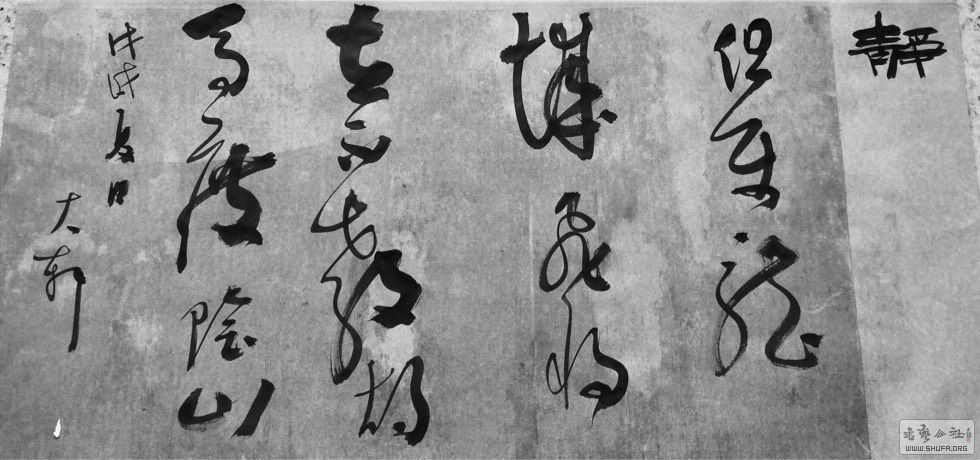 靜
但使龍
城飛將
在不教胡
馬度陰山
戊戌夏日
大軒
書藝公社
WWW.SHUFA.ORG